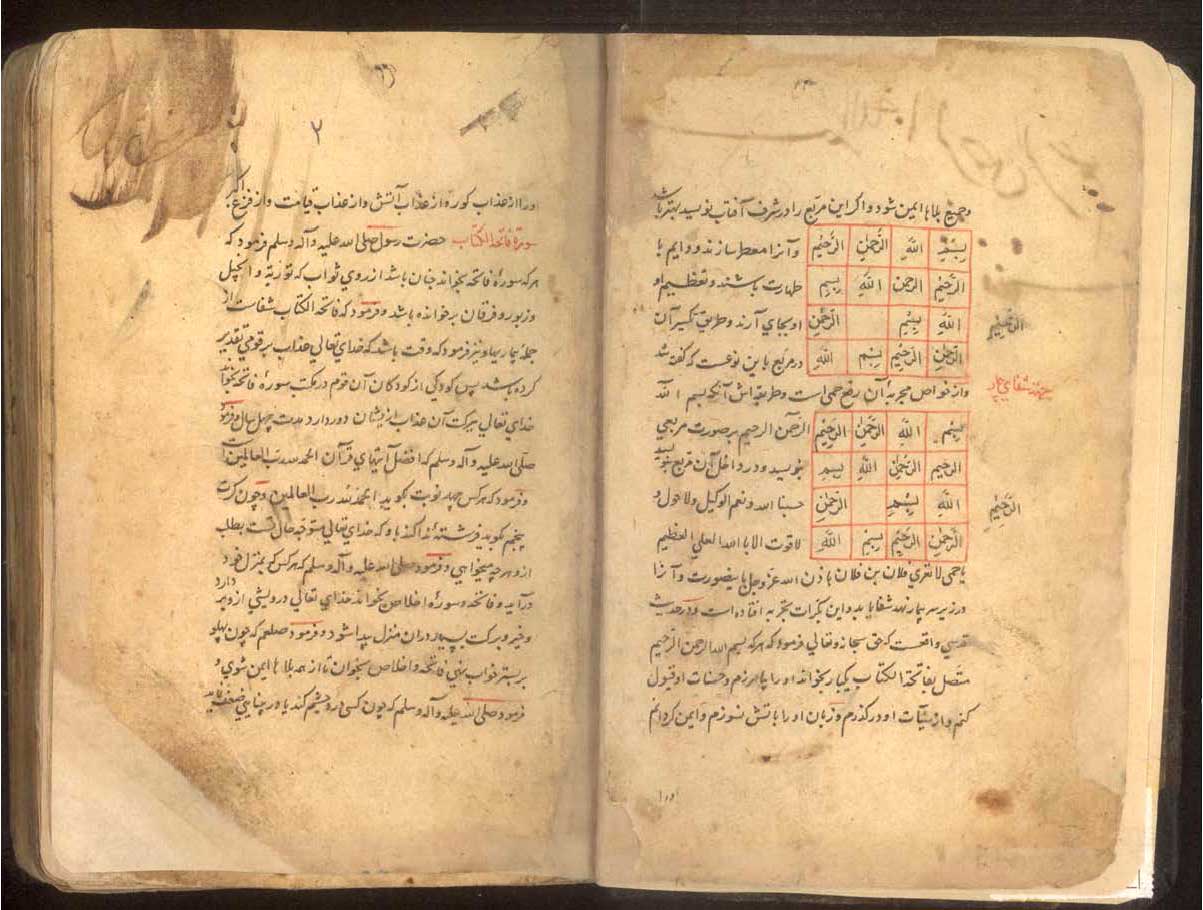 وجمیع بلاها ایمن شود و اکر این مربع را در شرف آفتاب نویسد بهتر باشد
بسم الله الرحمن الرحیم
وآنرا معطر سازند و دایم با
الرحیم الرحمن الله بسم
طهارت باشند و تعظیم او
الله بسم الرحیم الرحمن
او بجای آرند و طریق تکسیر آن
الرحمن الرحیم بسم الله
در مربع باین نوعست که گفته شد
واز خواص مجربه آن رفع حمی است و طریقه اش آنکه بسم الله
بجهة شفای بیمار
بسم الله الرحمن الرحیم
الرحمن الرحیم بر صورت مربعی
الرحیم الرحمن الله بسم
بنویسد و در داخل آن مربع بنویسد
الله بسم الرحیم الرحمن
حسبنا الله ونعم الوکیل ولا حول و
الرحمن الرحیم بسم الله
لا قوت الا باالله العلی العظیم
یا حمی لا تقربی فلان بن فلان باذن الله عز وجل باینصورت وآنرا
در زیر سر بیمار نهد شفا یابد و این بکرات بتجربه افتاده است ودر حدیث
قدسی واقعست که حق سبحانه وتعالی فرمود که هر که بسم الله الرحمن الرحیم
متصل بفاتحة الکتاب یکبار بخواند او را بیامرزم وحسنات او قبول
کنم واز سیئات او در کذرم وزبان او را باتش نسوزم وایمن کردانم
۲
اورا از عذاب کور و از عذاب آتش واز عذاب قیامت واز فزع اکبر
سورة فاتحة الکتاب حضرت رسول صلی الله علیه وآله وسلم فرمود که
هر که سورۀ فاتحه بخواند چنان باشد از روی ثواب که توریة وانجیل
وزبور و فرقان بر خوانده باشد وفرمود که فاتحة الکتاب شفاست از
جمله بیماریها ونیز فرمود که وقت باشد که خدای تعالی عذاب بر قومی تقدیر
کرده باشد پس کودکی از کودکان آن قوم در مکتب سورۀ فاتحه بخواند
خدای تعالی ببرکت آن عذاب از ایشان دور دارد مدت چهل سال وفرمود
صلی الله علیه وآله وسلم که افضل آیتهای قرآن الحمد لله رب العالمین است
وفرمود که هر کس چهار نوبت بکوید الحمد لله رب العالمین وچون کرت
پنجم کوید فرشتۀ ندا کند باو که خدای تعالی متوجه حال تست بطلب
ازو هر چه میخواهی وفرمود صلی الله علیه وآله وسلم که هر کس که بمنزل خود
در آید و فاتحه وسورۀ اخلاص بخواند خدای تعالی درویشی ازو بر دارد
وخیر وبرکت بسیار در ان منزل پیدا شود وفرمود صلعم که چون پهلو
بر بستر خواب نهی فاتحه واخلاص بخوان تا از همه بلاها ایمن شوی و
فرمود صلی الله علیه وآله وسلم که چون کسی درد چشم کند یا در بینایی ضعف یابد